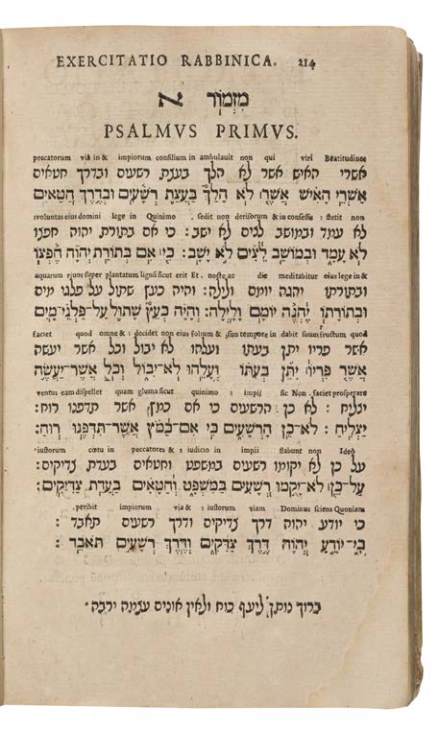 EXERCITATIO RABBINICA. 214
מזמור א
PSALMVS PRIMVS.
peccatorum via in & impiorum consilium in ambulauit non qui viri Beatitudines
אשרי האיש אשר לא הלך בעצת רשעים ובדרך חטאים
אַשְׁרֵי הָאִישׁ אֲשֶׁר לֹא הָלַךְ בַּעֲצַת רְשָׁעִים וּבְדֶרֶךְ חַטָּאִים
voluntas eius domini lege in Quinimo . sedit non derisorum & in consessu : stetit non
לא עמד ובמושב לצים לא ישב: כי אם בתורת יהוה חפצו
לֹא עָמָד וּבְמוֹשַׁב לֵצִים לֹא יָשָׁב: כִּי אִם בְּתוֹרַת יְהוָֹה חֶפְצוֹ
aquarum riuos super plantatum lignū sicut erit Et . nocte ac die meditabitur eius lege in &
ובתורתו יהגה יומם ולילה: והיה כעץ שתול על פלגי מים
וּבְתוֹרָתוֹ יֶהְגֶּה יוֹמָם וָלָיְלָה: וְהָיָה כְּעֵץ שָׁתוּל עַל־פַּלְגֵי־מָיִם
faciet quod omne & : decidet non eius folium & , suo tempore in dabit suum fructum quod
אשר פריו יתן בעתו ועלהו לא יבול וכל אשר יעשה
אֲשֶׁר פִּרְיוֹ יִתֵּן בְּעִתּוֹ וְעָלֵהוּ לֹא־יִבּוֹל וְכֹל אֲשֶׁר־יַעֲשֶׂה
ventus eam dispellet quam gluma sicut quinimo : impii sic Non . faciet prosperare
יצליח : לא כן הרשעים כי אם כמץ אשר תדפנו רוח:
יַצְלִיחַ : לֹא־כֵן הָרְשָׁעִים כִּי אִם־כַּמֹּץ אֲשֶׁר־תִּדְּפֶנּוּ רוּחַ:
:iustorum cœtu in peccatores & : iudicio in impii stabunt non Ideo
על כן לא יקומו רשעים במשפט וחטאים בעדת צדיקים:
עַל־כֵּן לֹא־יָקֻמוּ רְשָׁעִים בַּמִּשְׁפָּט וְחַטָּאִים בַּעֲדַת צַדִּיקִים:
.peribit impiorum via & : iustorum viam Dominus sciens Quoniam
כי יודע יהוה דרך צדיקים ודרך רשעים תאבד :
כִּי־יוֹדֵעַ יְהוָֹה דֶּרֶךְ צַדִּקִים וְדֶרֶךְ רְשָׁעִים תֹּאבֵד :
ברוך נותן ליעף כוח ולאין אונים עצמה ירבה·